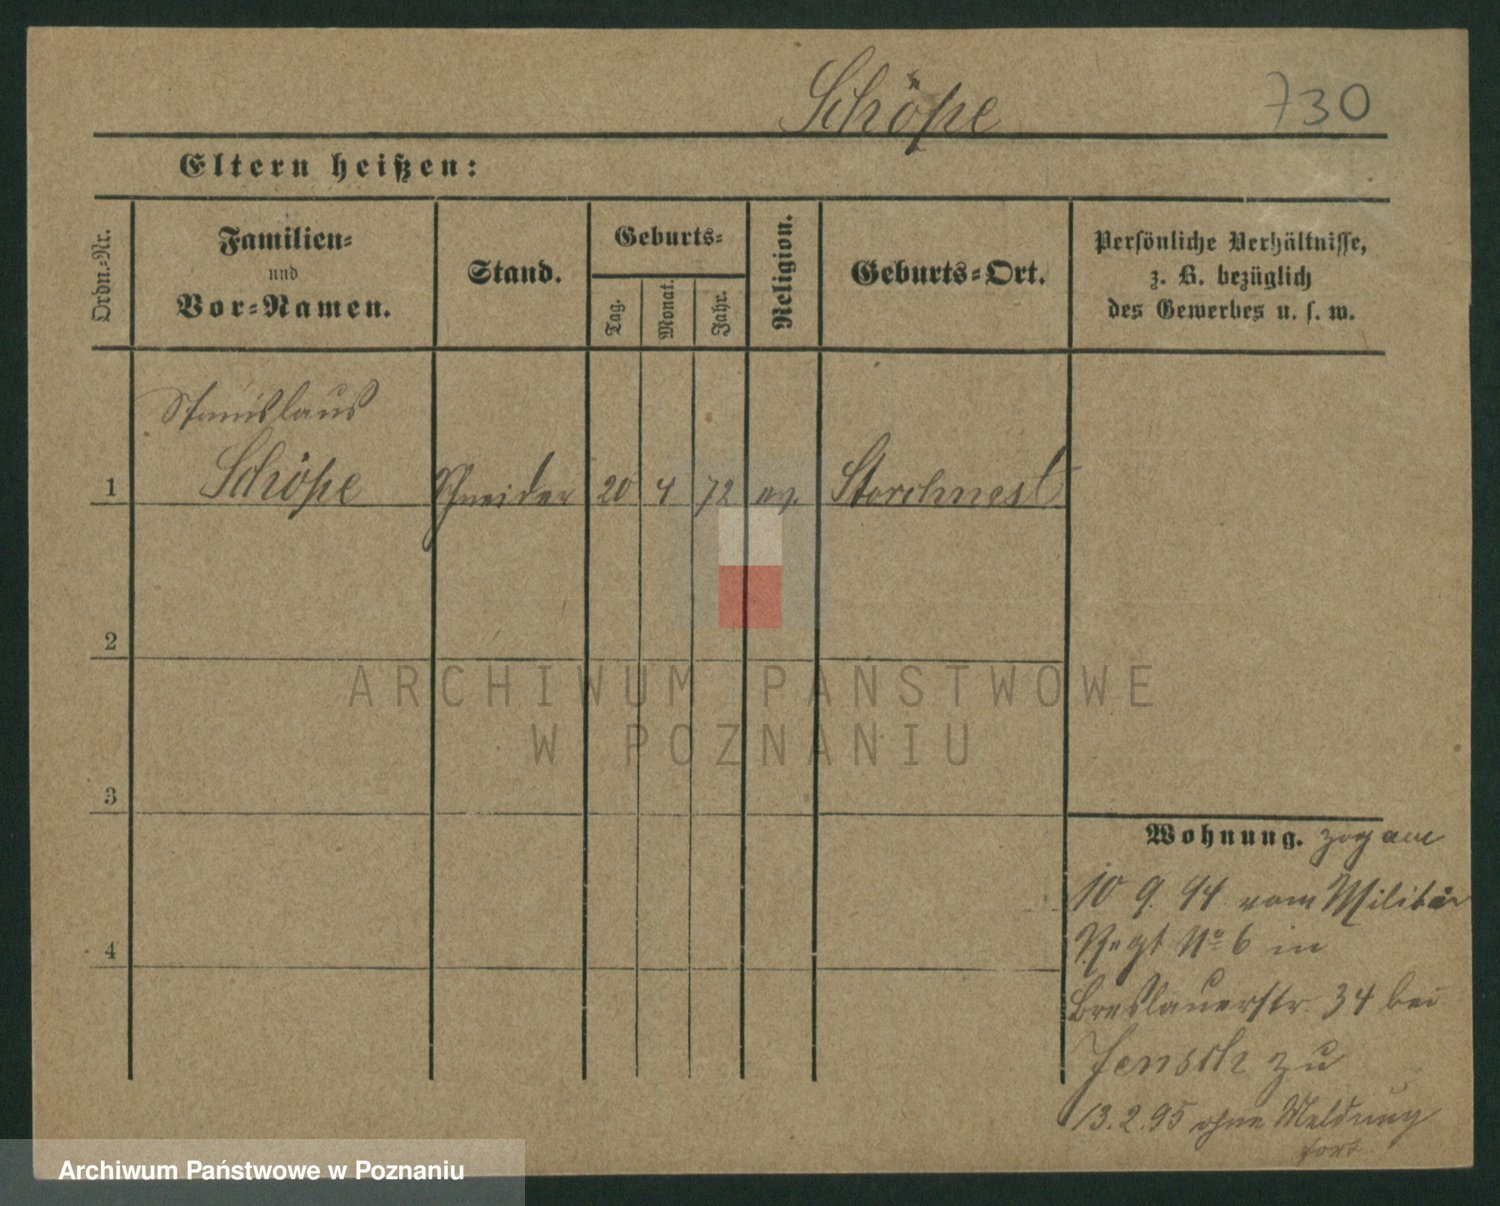 Schöpe
730
Eltern heißen:
Ordn.-Nr.
Familien-
und
Vor-Namen.
Stand.
Geburts-
Tag.
Monat.
Jahr.
Religion.
Geburts-Ort.
Persönliche Verhältnisse,
z. B. bezüglich
des Gewerbes u. s. w.
Stanislaus
1 Schöpe Schneider 20 4 72 ev. Storchnest
2
ARCHIWUM PAŃSTWOWE
W POZNANIU
3
Wohnung. zog am
10 9. 94 vom Militär
Regt No 6 in
Breslauerstr. 34 bei
Jensch zu
4
13.2.95 ohne Meldung
fort
Archiwum Państwowe w Poznaniu